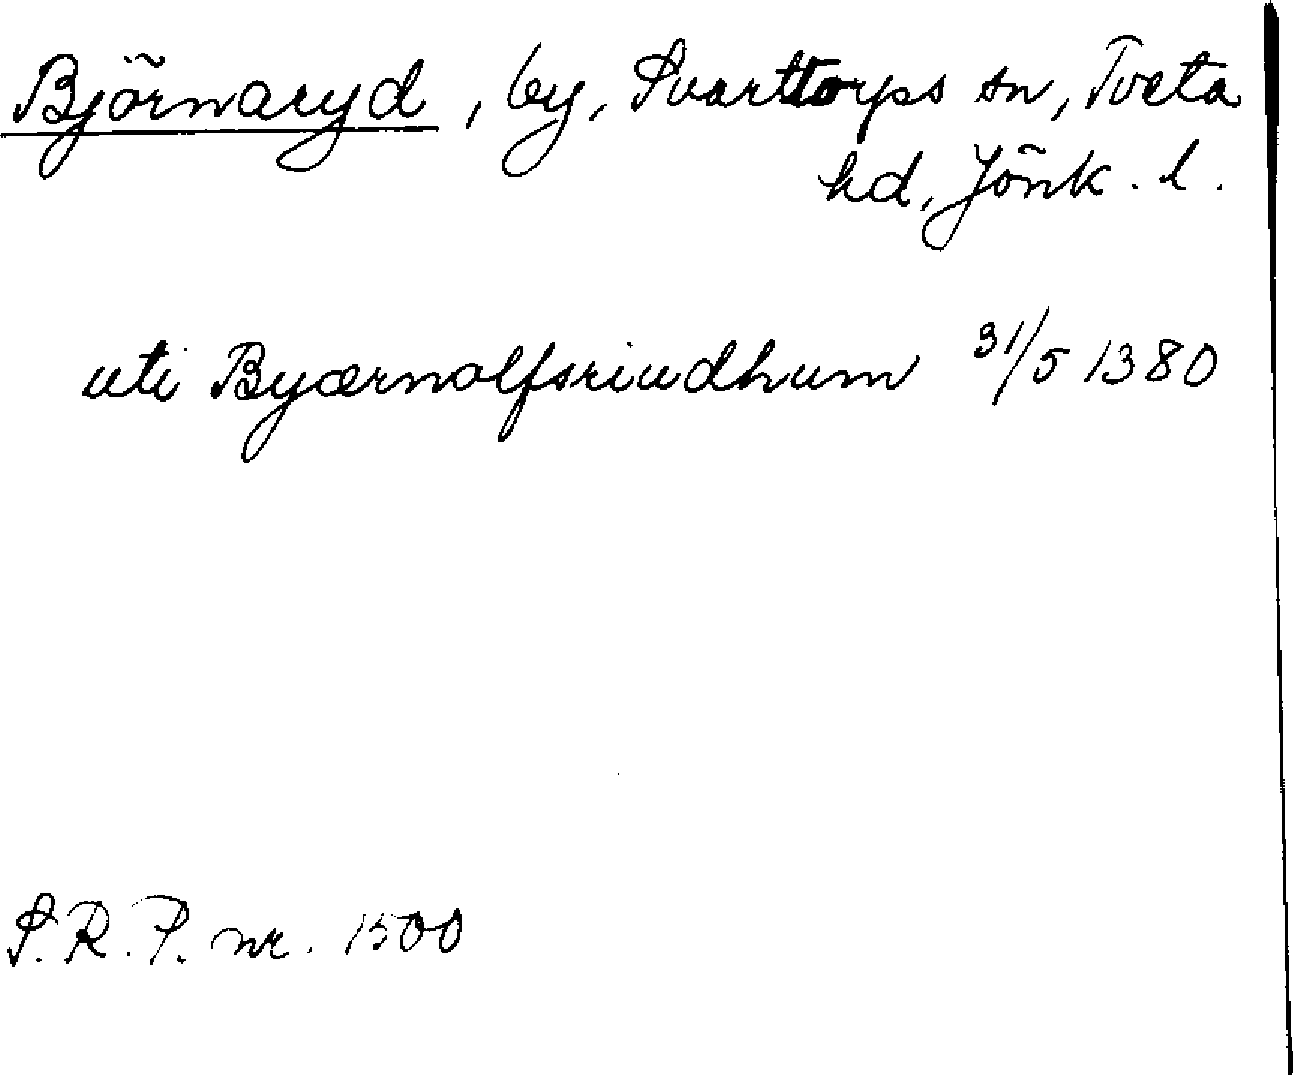 Björnaryd, by, Svarttorps sn, Tveta
hd, Jönk. l.
uti Byærnolfsriudhum 31/5 1380
S.R.P. nr. 1500